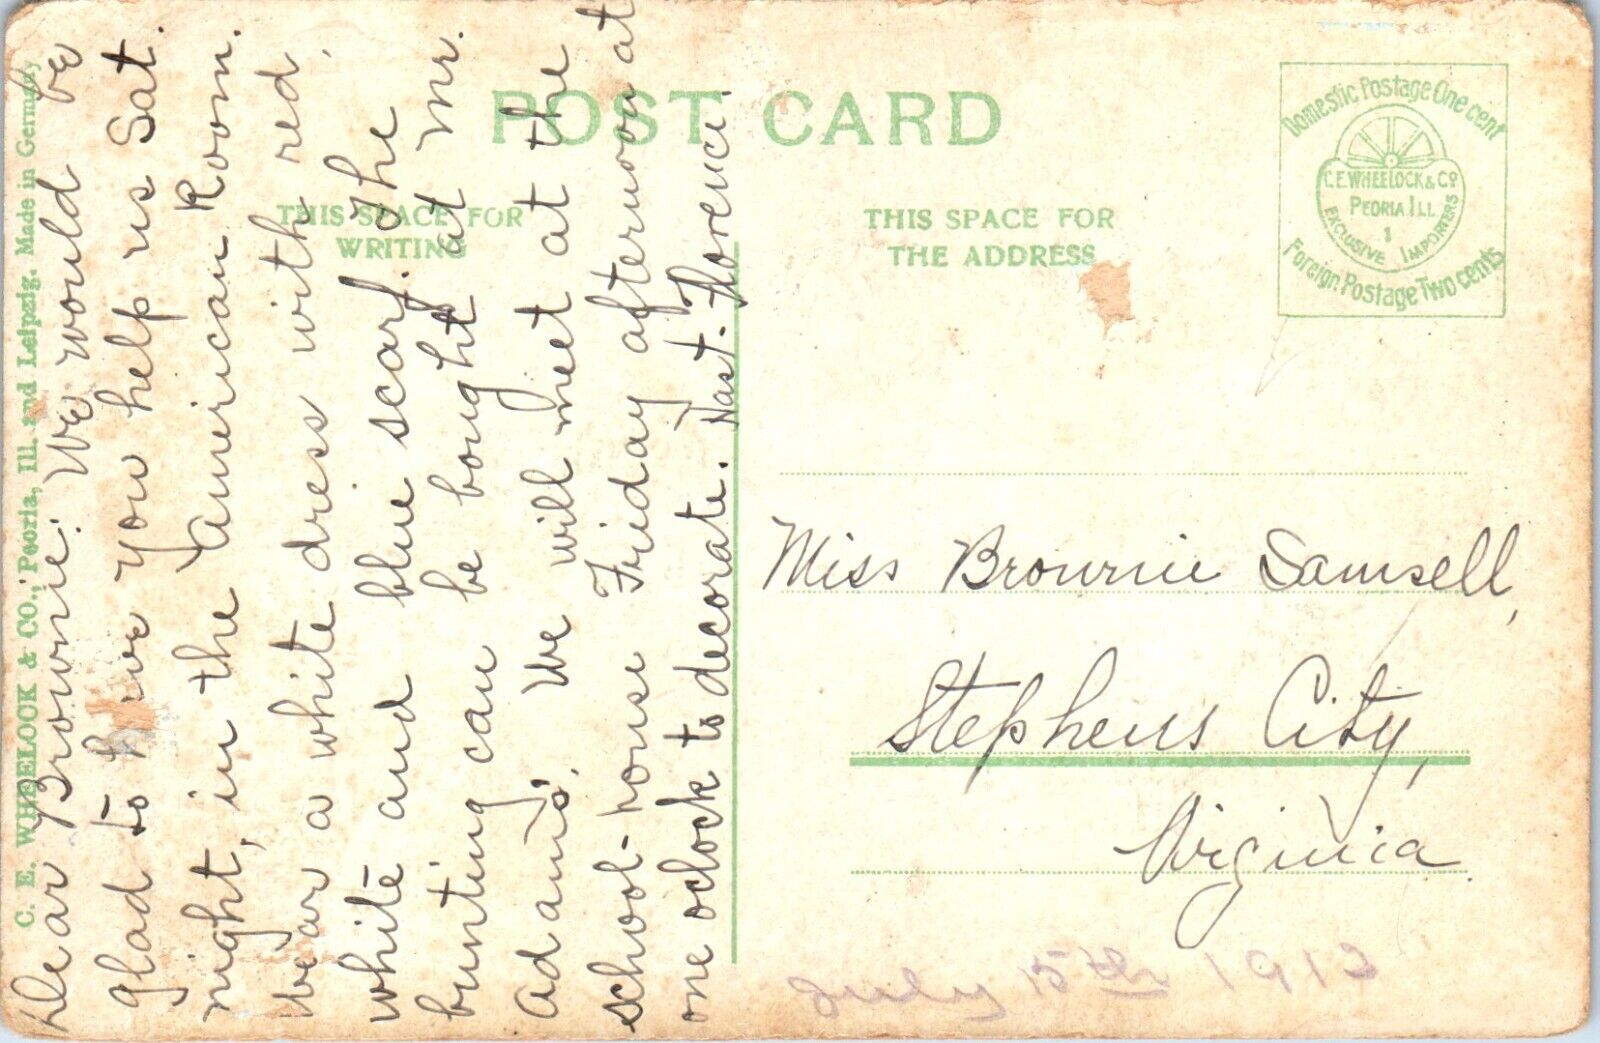 POST CARD
THIS SPACE FOR
WRITING
THIS SPACE FOR
THE ADDRESS
Domestic Postage One cent
C.E. WHEELOCK & Co
PEORIA ILL.
1
EXCLUSIVE IMPORTERS
Foreign Postage Two cents
C. E. WHEELOCK & CO., Peoria, Ill. and Leipzig. Made in Germany
Dear Brownie: We would be
glad to have you help us Sat.
night, in the American Room.
Wear a white dress with red,
white and blue scarf. The
bunting can be bought at Mr.
Adams'. We will meet at the
school-house Friday afternoon at
one oclock to decorate. Hast. Florence.
Miss Brownie Samsell,
Stephens City,
Virginia.
July 15th 1912